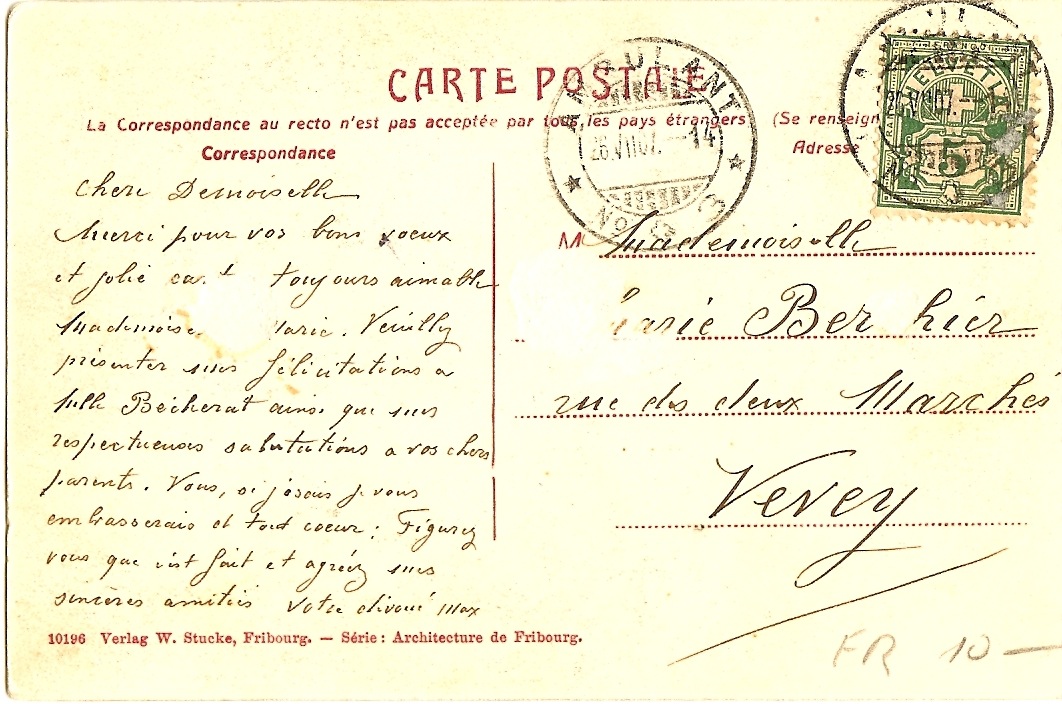 CARTE POSTALE
La Correspondance au recto n'est pas acceptée par tous les pays étrangers (Se renseign
Correspondance
Adresse
AMBULANT
26.VII07.–14
No 3
FRANCO
HELVETIA
5
Chere Demoiselle
Merci pour vos bons voeux
et jolie cart toujours aimable
Mademoise arie. Veuilly
présenter mes félicitations a
Mlle Bécherat ainsi que mes
respectueuses salutations a vos chers
parents. Vous, si j'osais je vous
embrasserais et tout coeur : Figurez
vous que c'est fait et agréez mes
sincères amitiés votre dévoué Max
M Mademoiselle
arie Ber hier
rue des deux Marchés
Vevey
10196 Verlag W. Stucke, Fribourg. — Série : Architecture de Fribourg.
FR 10—